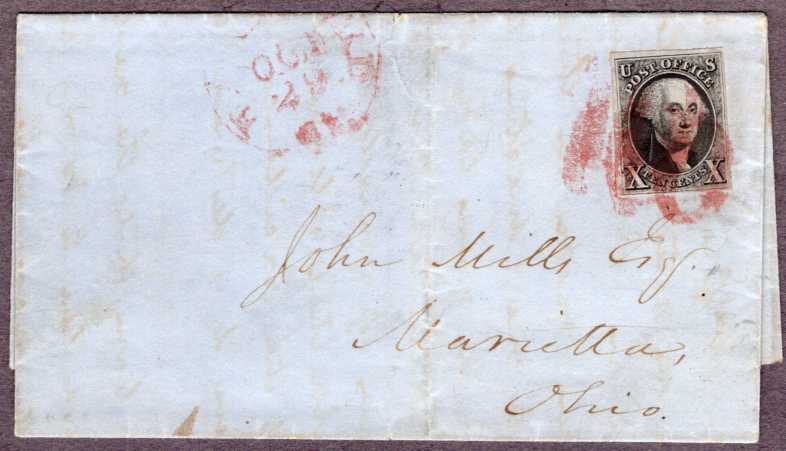 OCT
29
U S
POST OFFICE
X TEN CENTS X
John Mills Esq.
Marietta,
Ohio.